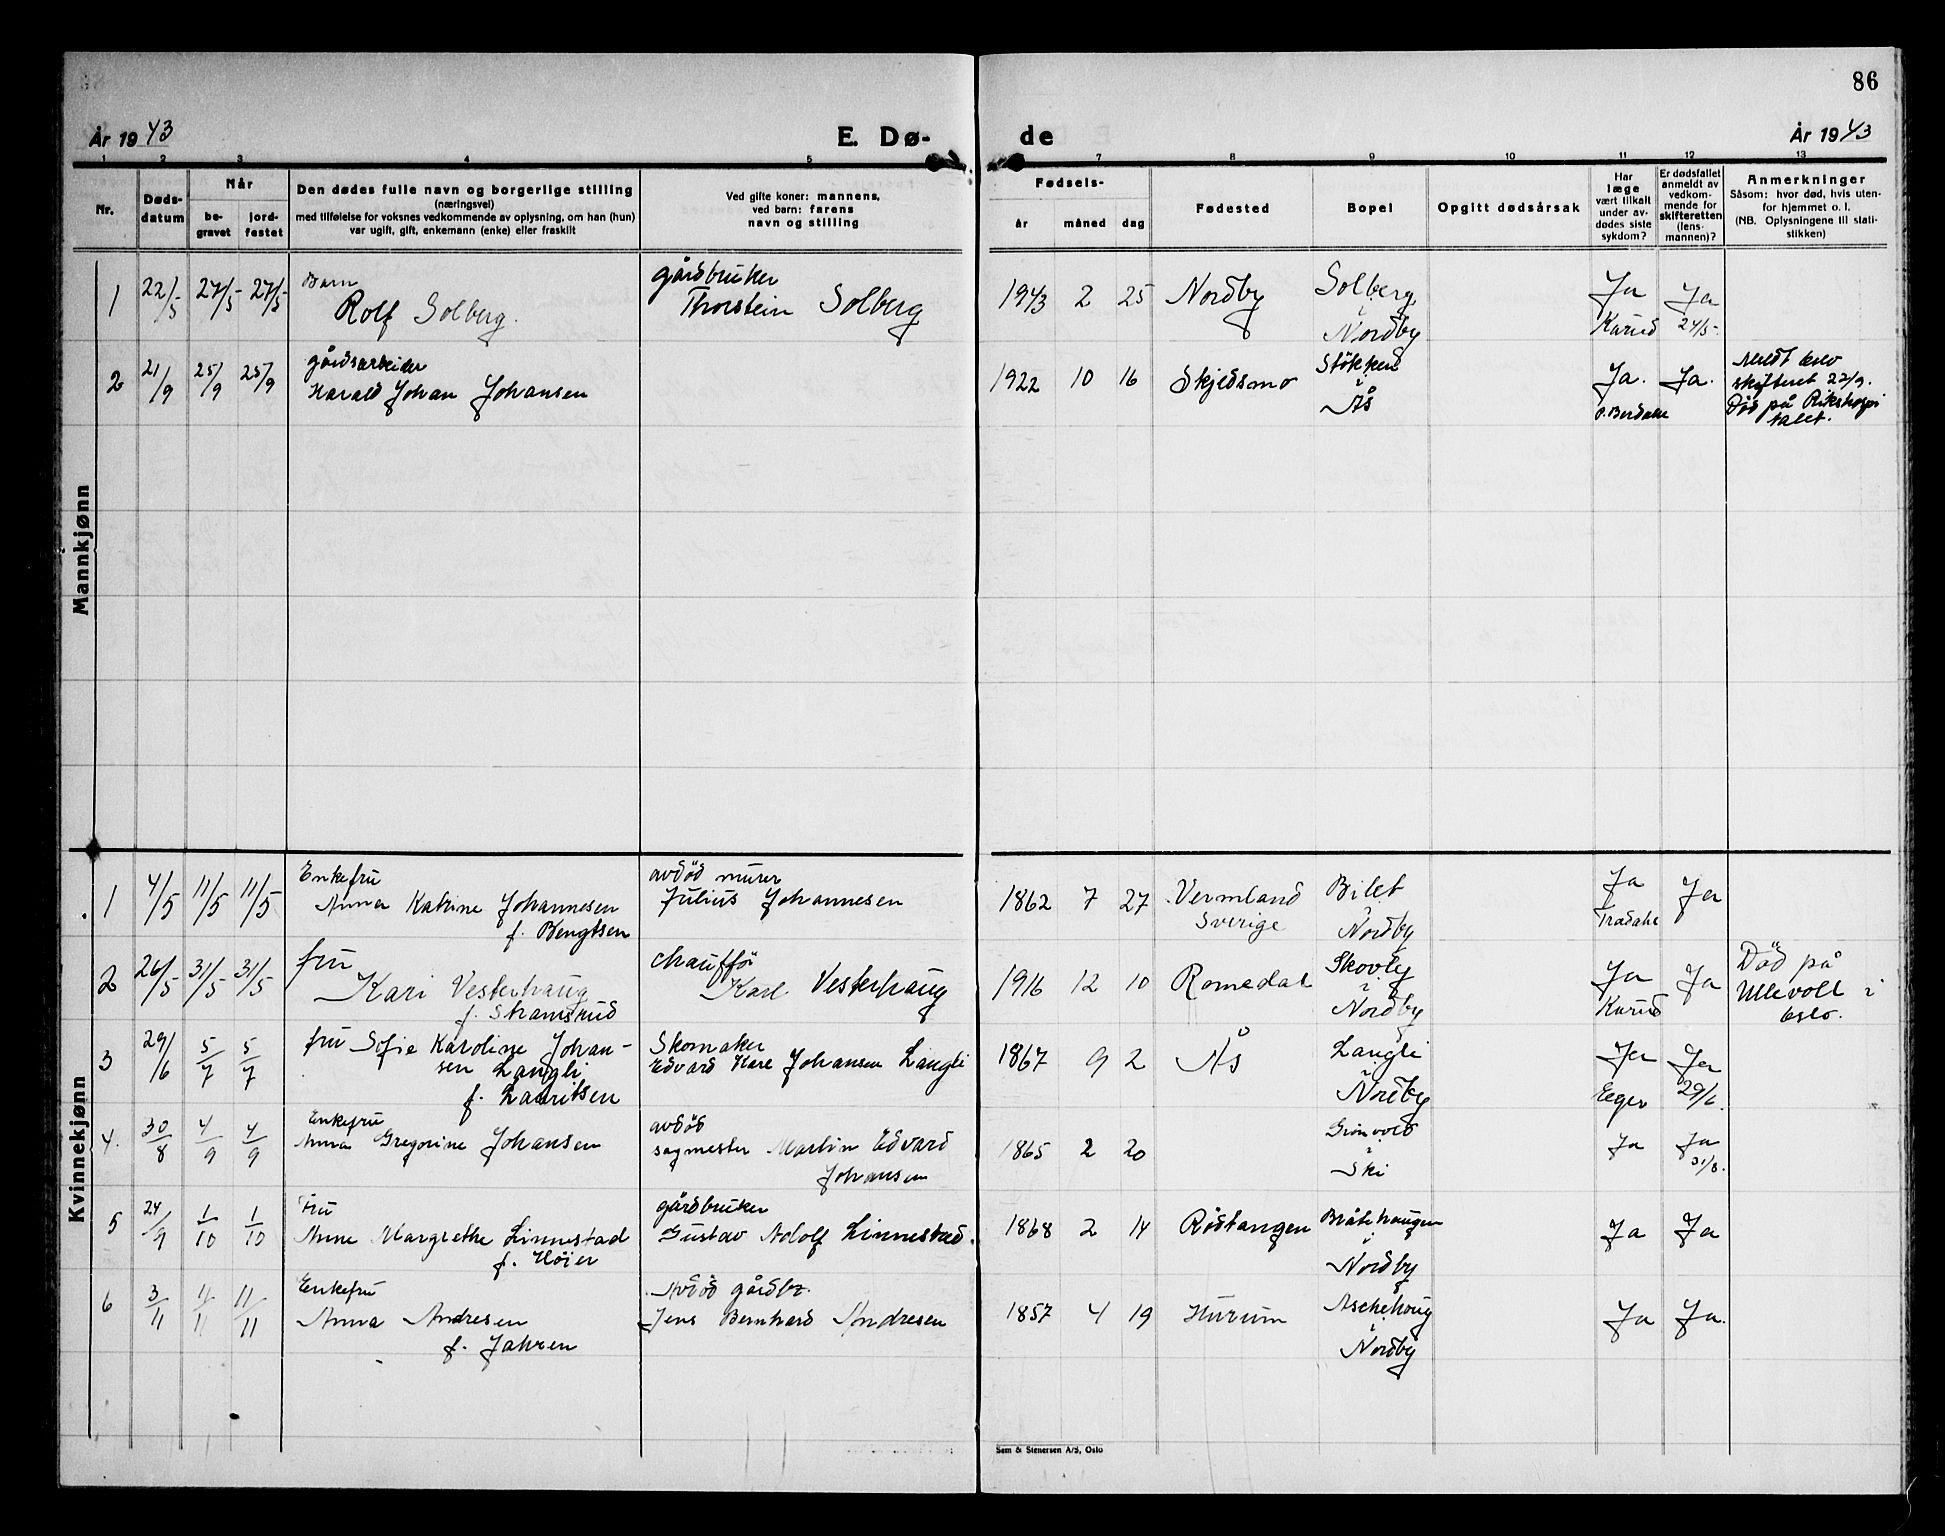 86
År 1943
E. Dø-
de
År 1943
1 2 3 4 5 7 8 9 10 11 12 13
Nr.
Døds-
datum
Når
be-
gravet
jord-
festet
Den dødes fulle navn og borgerlige stilling
(næringsvei)
med tilføielse for voksnes vedkommende av oplysning, om han (hun)
var ugift, gift, enkemann (enke) eller fraskilt
Ved gifte koner: mannens,
ved barn: farens
navn og stilling
Fødsels-
år
måned
dag
Fødested
Bopel
Opgitt dødsårsak
Har
læge
vært tilkalt
under av-
dødes siste
sykdom?
Er dødsfallet
anmeldt av
vedkom-
mende for
skifteretten
(lens-
mannen)?
Anmerkninger
Såsom: hvor død, hvis uten-
for hjemmet o. l.
(NB. Oplysningene til stati-
stikken)
Mannkjønn
1 22/5 27/5 27/5
Barn
Rolf Solberg.
gårdbruker
Thorstein Solberg
1943 2 25 Nordby
Solberg
i
Nordby
Ja
Karud
Ja
24/5-
2 21/9 25/9 25/9
gårdsarbeider
Harald Johan Johansen
1922 10 16 Skjedsmo
Stökken
i
Ås
Ja.
Ja.
Meldt Oslo
skifteret 22/9.
Död på Rikshospi
talet.
Kvinnekjønn
1 4/5 11/5 11/5
Enkefru
Anna Katrine Johannesen
f. Bengtsen
avdöd murer
Julius Johannesen
1862 7 27 Vermland
Sverige
Bilet
i
Nordby
Ja
Ja
2 26/5 31/5 31/5
fru
Kari Vesterhaug
f. Stramsrud
chaufför
Karl Vesterhaug
1916 12 10 Romedal
Skovly
i
Nordby
Ja
Karud
Ja
Död på
Ullevoll i
Oslo.
3 29/6 5/7 5/7
fru Sofie Karoline Johan-
sen Langli
f. Lauritsen
Skomaker
Edvard Karl Johansen Langli
1867 9 2 Ås
Langli
i
Nordby
Ja
Eger
Ja
29/6.
4. 30/8 4/9 4/9
Enkefru
Anna Gregorine Johansen
avdöd
sagmester Martin Edvard
Johansen
1865 2 20
Grönvold
i
Ski
Ja
Ja
31/8.
5 24/9 1/10 1/10
Fru
Anne Margrethe Linnestad
f. Höier
gårdbruker
Gustav Adolf Linnestad.
1868 2 14 Rödtangen
Bråtehaugen
i
Nordby
Ja
Ja
6 3/11 11/11 11/11
Enkefru
Anna Andresen
f. Jahren
Avdöd gårdbr.
Jens Bernhard Andresen
1857 4 19 Hurum
Aschehoug
i
Nordby
Ja
Ja.
Sem & Stenersen A/S, Oslo